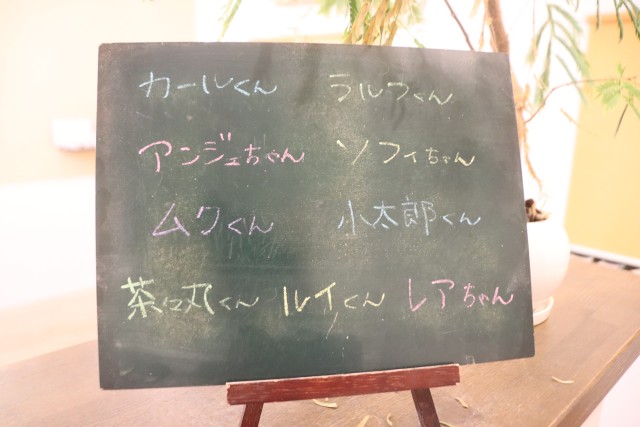 カールくん ラルフくん
アンジェちゃん ソフィちゃん
ムクくん 小太郎くん
茶々丸くん ルイくん レアちゃん